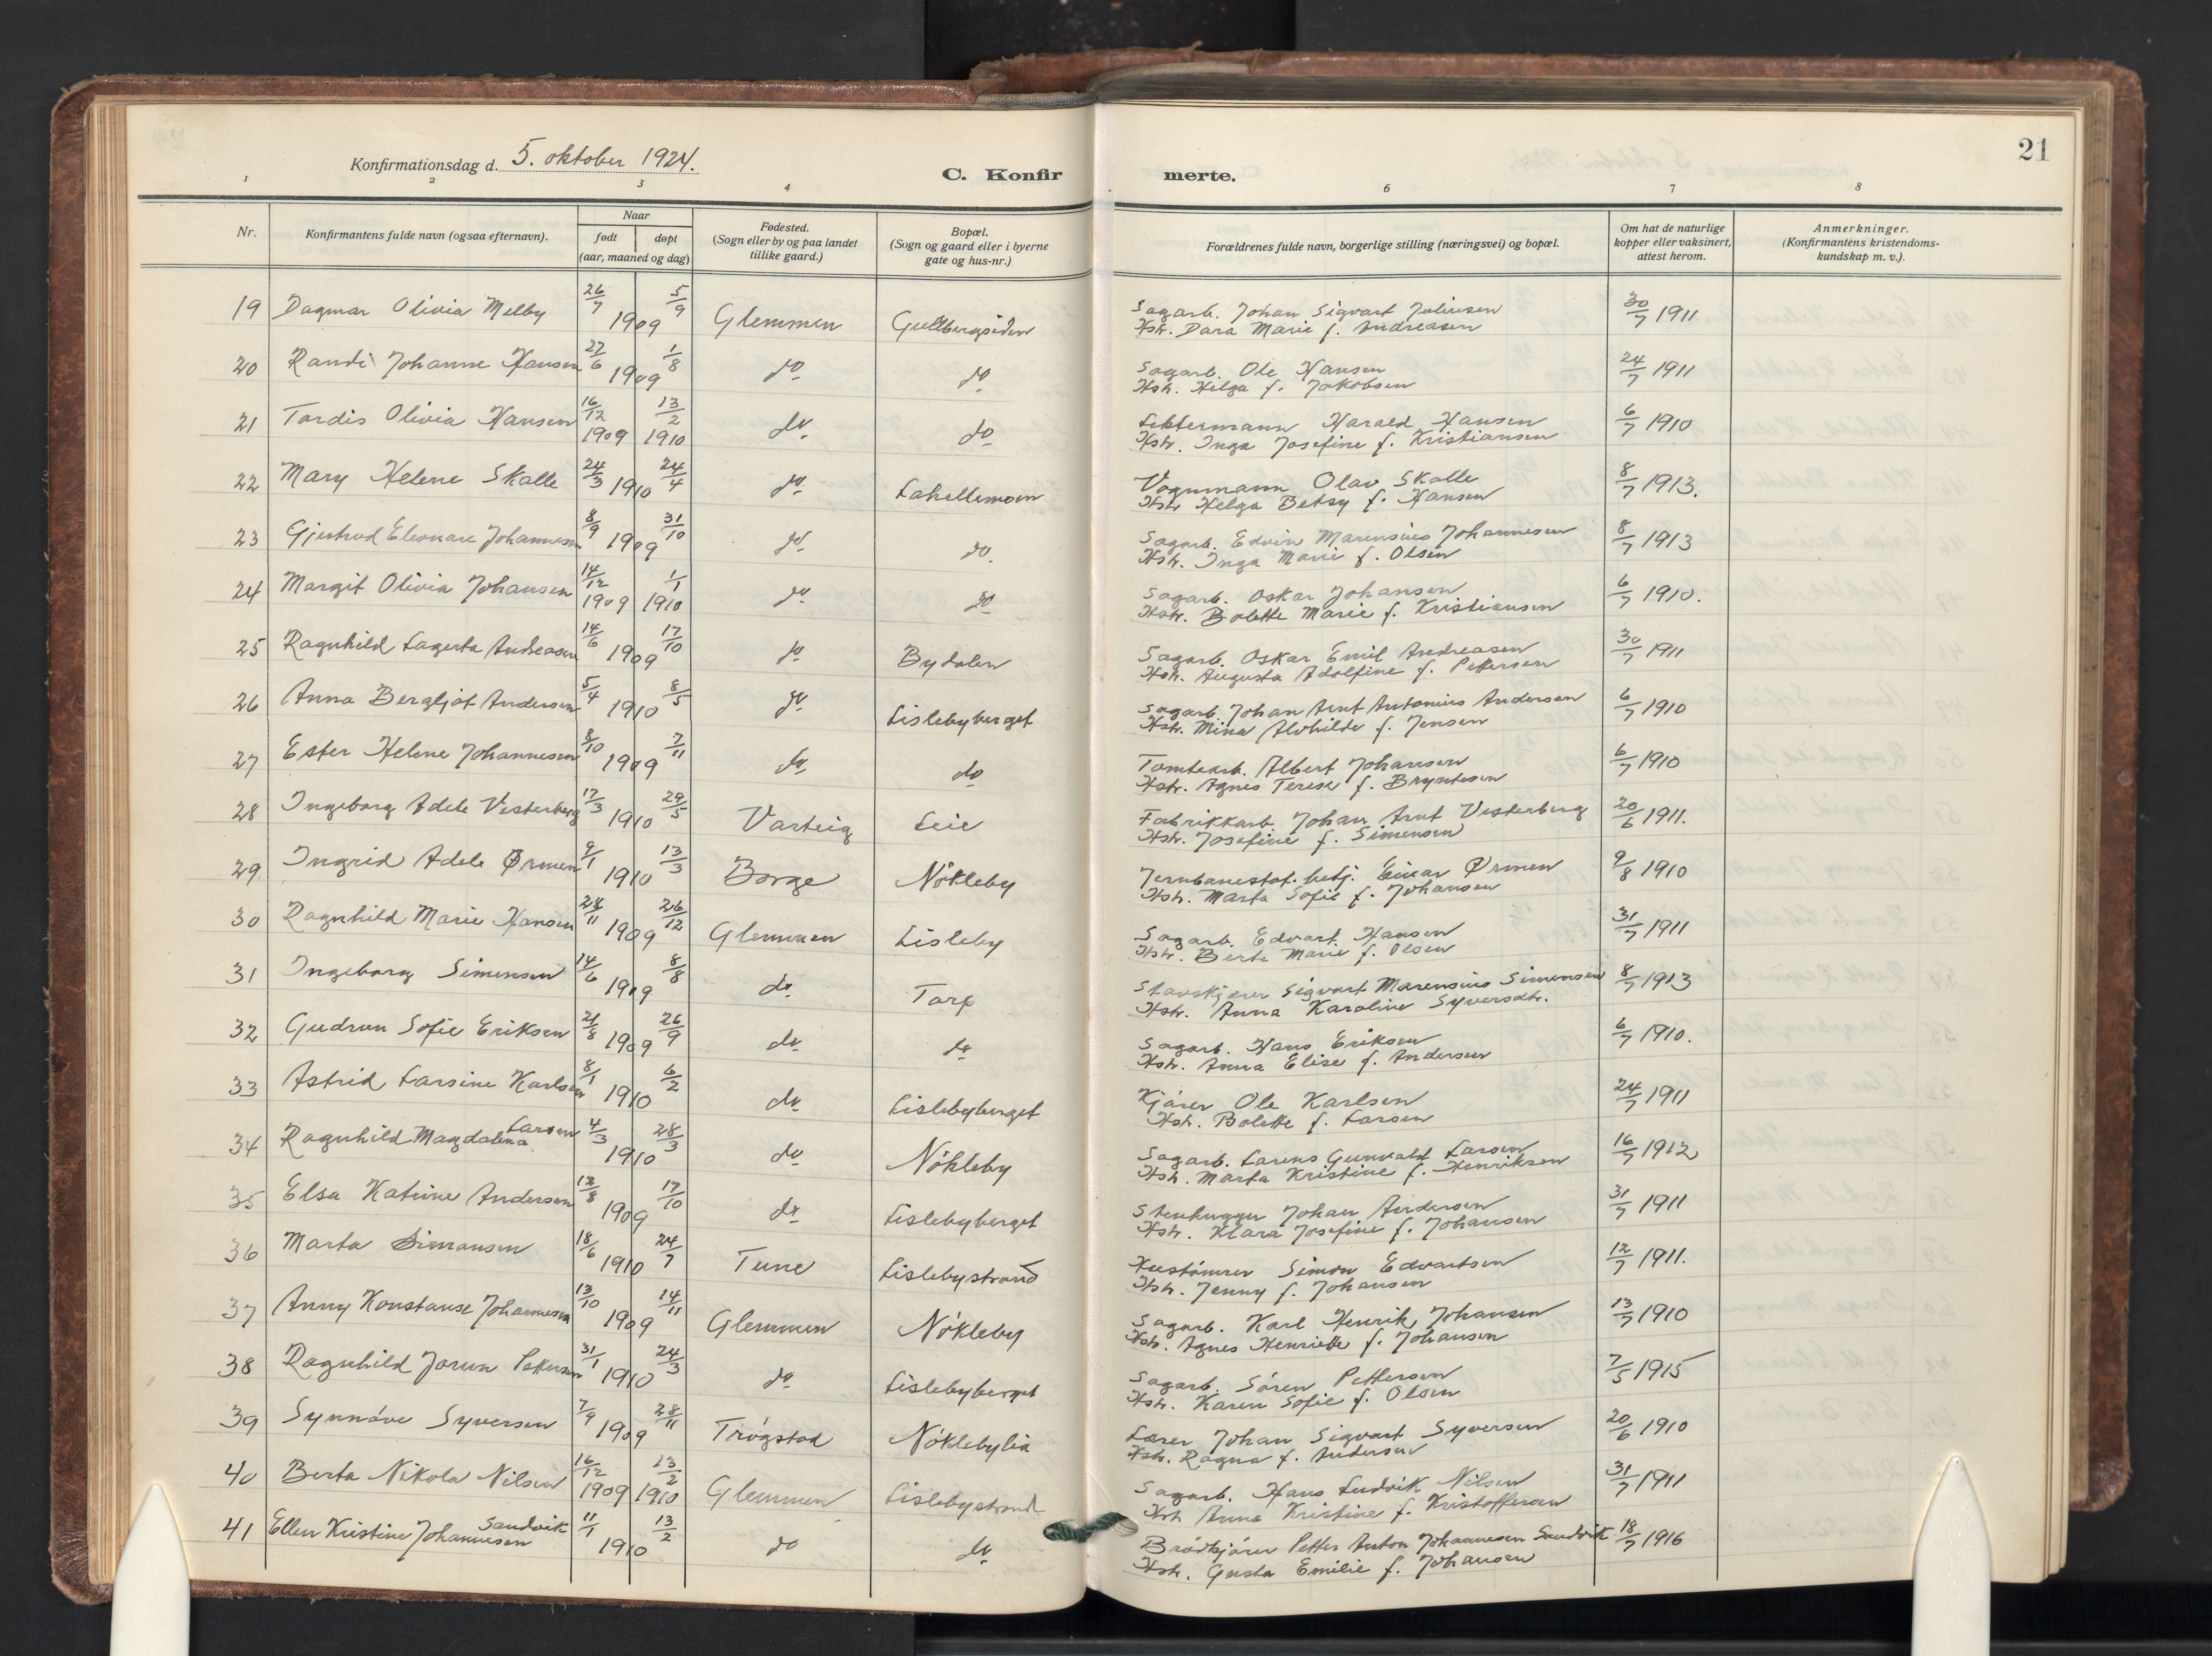 21
Konfirmationsdag d. 5. oktober 1924.
C. Konfirmerte.
1 2 3 4 6 7 8
Nr.
Konfirmantens fulde navn (ogsaa efternavn).
Naar
født døpt
(aar, maaned og dag)
Fødested.
(Sogn eller by og paa landet
tillike gaard.)
Bopæl.
(Sogn og gaard eller i byerne
gate og hus-nr.)
Forældrenes fulde navn, borgerlige stilling (næringsvei) og bopæl.
Om hat de naturlige
kopper eller vaksinert,
attest herom.
Anmerkninger.
(Konfirmantens kristendoms-
kundskap m. v.).
19 Dagmar Olivia Melby 26/7 1909 5/9 Glemmen Guldbergsiden Sagarb. Johan Sigvart Juliusen 30/7 1911
Hstr. Dara Marie f. Andreasen
20 Randi Johanne Hansen 27/6 1909 1/8 do do Sagarb. Ole Hansen 24/7 1911
Hstr. Helga f. Jakobsen
21 Tordis Olivia Hansen 16/12 1909 13/2 1910 do do Harald Hansen 6/7 1910
Hstr. Inga Josefine f. Kristiansen
22 Mary Helene Skalle 24/3 1910 24/4 do Lahellemoen Vognmann Olav Skalle 8/7 1913.
Hstr Helga Betsy f. Hansen
23 Gjertrud Eleonare Johannesen 8/9 1909 31/10 do do Sagarb. Edvin Marensius Johannesen 8/7 1913
Hstr. Inga Marie f. Olsen
24 Margit Olivia Johansen 14/12 1909 1/1 1910 do do Sagarb. Oskar Johansen 6/7 1910.
Hstr. Bolette Marie f. Kristiansen
25 Ragnhild Lagerta Andreasen 14/6 1909 17/10 do Bydalen Sagarb. Oskar Emil Andreasen 30/7 1911
Hstr. Augusta Adolfine f. Pettersen
26 Anna Bergljot Andersen 5/4 1910 8/5 do Lislebyberget Sagarb. Johan Arnt Antonius Andersen 6/7 1910
Hstr. Mina Alvhilde f. Jensen
27 Ester Helene Johannesen 8/10 1909 7/11 do do Tomtearb. Albert Johansen 6/7 1910
Hstr. Agnes Terese f. Bryntesen
28 Ingeborg Adele Vesterberg 17/3 1910 29/5 Varteig Leie Fabrikkarb. Johan Arnt Vesterberg 20/6 1911.
Hstr. Josefine f. Simensen
29 Ingrid Adele Ørmen 9/1 1910 13/3 Borge Nökleby Jernbanestat. betj. Einar Ørmen 9/8 1910
Hstr. Marta Sofie f. Johansen
30 Ragnhild Marie Hansen 28/11 1909 26/12 Glemmen Lisleby Sagarb. Edvart Hansen 31/7 1911
Hstr. Berte Marie f. Olsen
31 Ingeborg Simensen 14/6 1909 8/8 do Torp Stavskjærer Sigvart Marensius Simensen 8/7 1913
Hstr. Anna Karoline Syversdtr.
32 Gudrun Sofie Eriksen 21/8 1909 26/9 do do Sagarb. Hans Eriksen 6/7 1910.
Hstr. Anna Elise f. Andersen
33 Astrid Larsine Karlsen 8/1 1910 6/2 do Lislebyberget Kjörer Ole Karlsen 24/7 1911
Hstr. Bolette f. Larsen
34 Ragnhild Magdalena Larsen 4/3 1910 28/3 do Nökleby Sagarb. Larens Gunvald Larsen 16/7 1912
Hstr. Marta Kristine f. Henriksen
35 Elsa Katrine Andersen 13/8 1909 17/10 do Lislebyberget Stenhugger Johan Andersen 31/7 1911
Hstr. Klara Josefine f. Johansen
36 Marta Simonsen 18/6 1910 24/7 Tune Lislebystrand Simon Edvartsen 12/7 1911.
Hstr. Jenny f. Johansen
37 Anny Konstanse Johannesen 13/10 1909 14/11 Glemmen Nökleby Sagarb. Karl Henrik Johansen 13/7 1910
Hstr. Agnes Henriette f. Johansen
38 Ragnhild Jorun Pettersen 31/1 1910 24/3 do Lislebyberget Sagarb. Sören Pettersen 7/5 1915
Hstr. Karen Sofie f. Olsen
39 Synnöve Syversen 7/9 1909 28/11 Trögstad Nöklebylia Lærer Johan Sigvart Syversen 20/6 1910
Hstr. Ragna f. Andersen
40 Berta Nikola Nilsen 16/12 1909 13/2 1910 Glemmen Lislebystrand Sagarb. Hans Ludvik Nilsen 31/7 1911
Hstr Anna Kristine f. Kristoffersen
41 Ellen Kristine Johannesen Sandvik 11/1 1910 13/2 do do Brödkjörer Petter Anton Johannesen Sandvik 18/7 1916
Hstr. Gusta Emilie f. Johansen